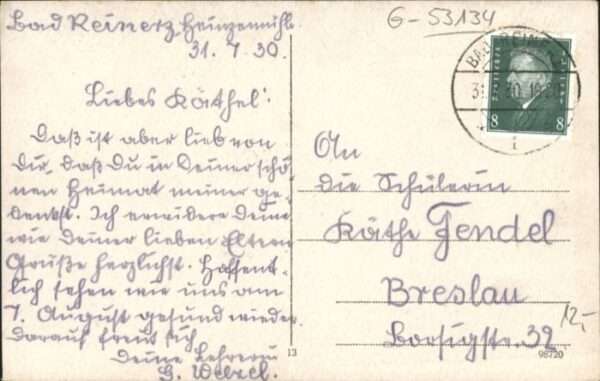 Bad Reinerz, Heinzemühle
31. 7. 30.
Liebes Käthel!
Daß ist aber lieb von
Dir, daß Du in Deiner schö-
nen Heimat meiner ge-
denkst. Ich erwidere Deine
wie Deiner lieben Eltern
Grüße herzlichst. Hoffent-
lich sehen wir uns am
7. August gesund wieder.
Darauf freut sich
Deine Lehrerin
G.
13
G-53134
BAD REINERZ
31. 30. 18
8 8
An
die Schülerin
Käthe Fendel
Breslau
Borsigstr. 32
12,-
98720